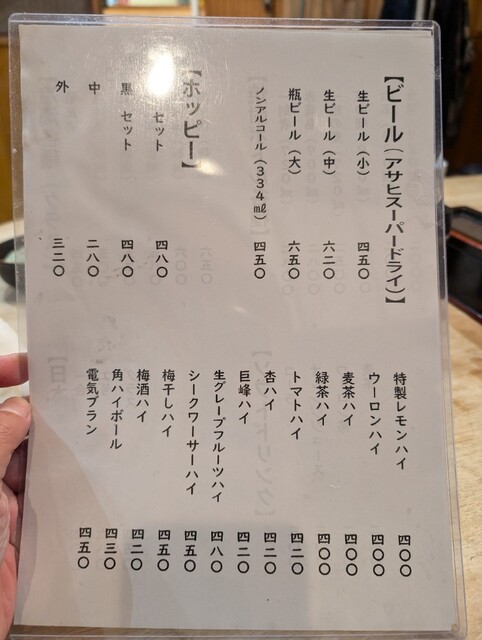 【ビール(アサヒスーパードライ)】
生ビール(小) 四五〇
生ビール(中) 六二〇
瓶ビール(大) 六五〇
ノンアルコール(334㎖) 四五〇
【ホッピー】
セット 四八〇
黒 セット 四八〇
中 二八〇
外 三二〇
特製レモンハイ 四〇〇
ウーロンハイ 四〇〇
麦茶ハイ 四〇〇
緑茶ハイ 四〇〇
トマトハイ 四二〇
杏ハイ 四二〇
巨峰ハイ 四二〇
生グレープフルーツハイ 四八〇
シークワーサーハイ 四五〇
梅干しハイ 四五〇
梅酒ハイ 四二〇
角ハイボール 四三〇
電気ブラン 四五〇